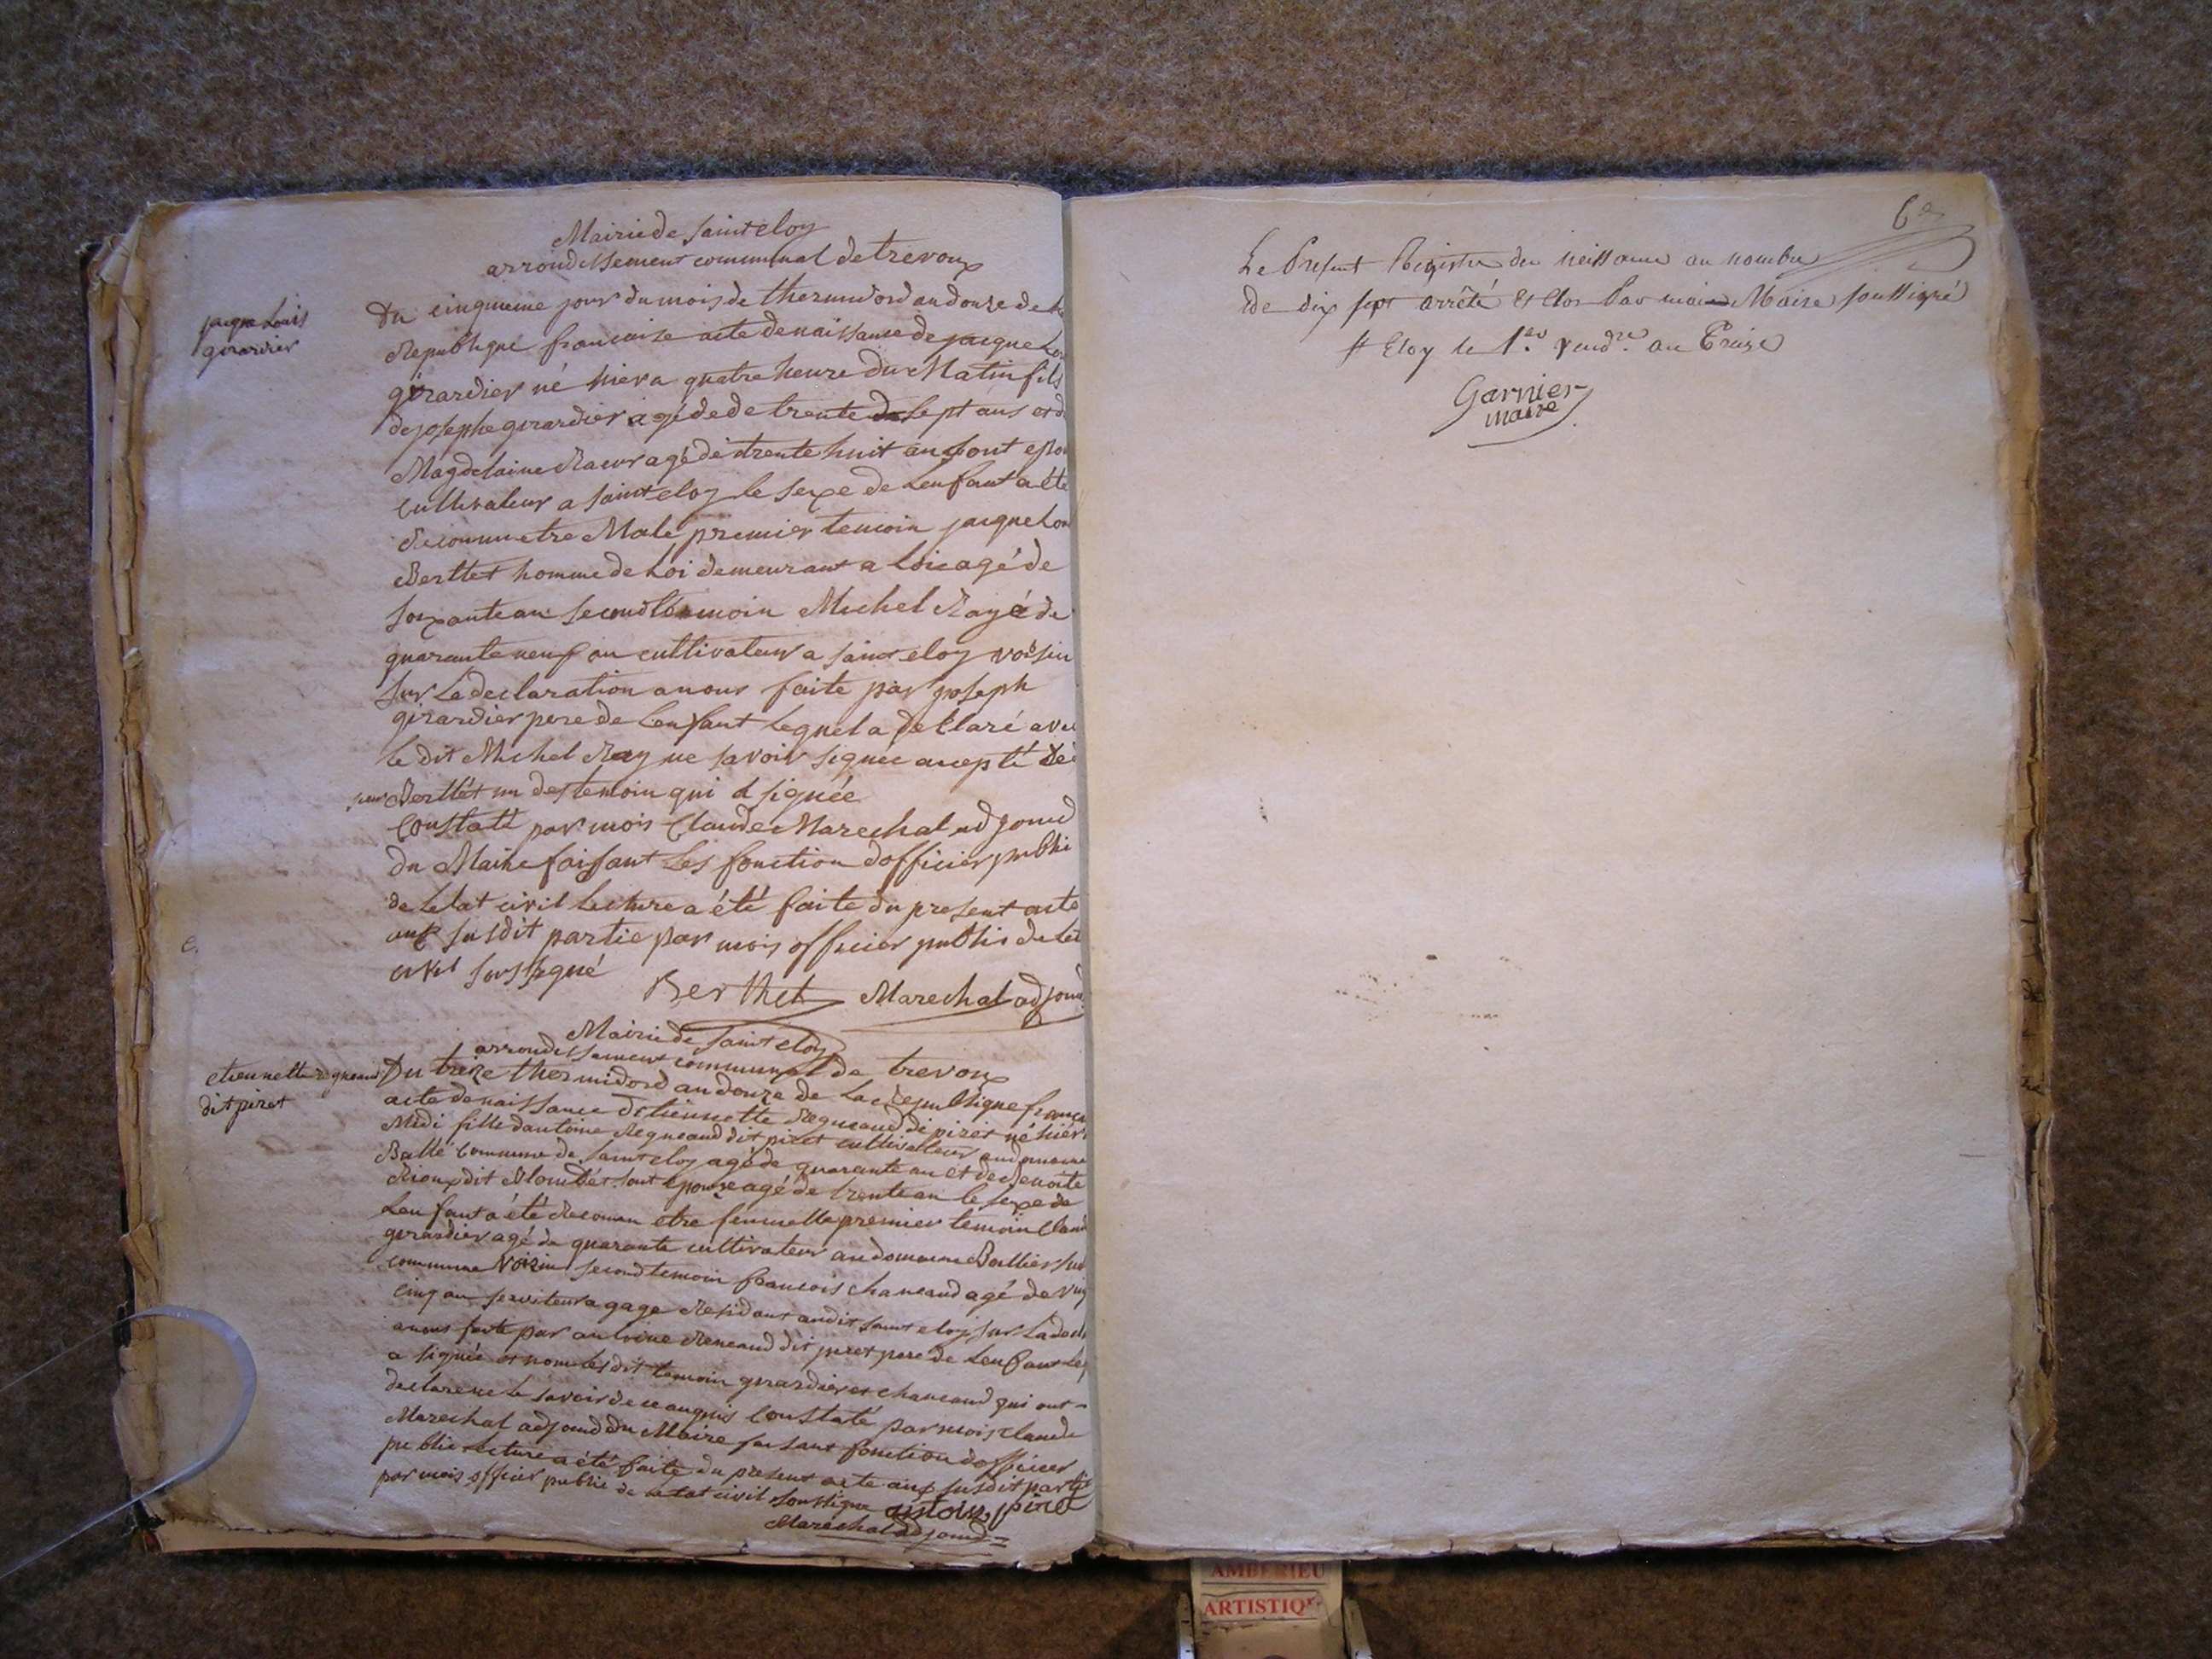 Mairie de saint eloy
arrondissement communal de trevoux
jacque Louis
girardier
Du cinquieme jour du mois de thermidord an douze de la
Republique francaise acte de naissance de jacque Lou
girardier né hier a quatre heure du Matin fils
de josephe girardier agé de de trente sept ans et d
Magdelaine agé de trente huit an sont epou
cultivateur a saint eloy le sexe de Lenfant a été
Reconnu etre Male premier temoin jacque Lou
Berttet homme de Loi demeurant a agé de
soixante an second temoin Michel Ray é de
quarante neuf an cultivateur a saint eloy voisin
sur La declaration a nous faite par joseph
girardier pere de Lenfant Lequel a declaré avec
le dit Michel Ray ne savoir signée acepté
Berttet un des temoin qui a signée
Constaté par mois Claude Marechal adjoind
du Maire faissant Les fonction dofficier publi
de Letat civil Lecture a été faite du present acte
aux susdit partie par mois officier publis de Let
civil soussigné
Berthet Marechal adjoind
Mairie de saint eloy
arrondissement communal de trevoux
etiennette regneaud
dit piret
Du treize thermidord an douze de La Republique francai
acte de naissance detiennette Regneaud di piret né hier
Midi fille dantoine Regneaud dit piret cultivateur au domaine
Ballé commune de saint eloy agé de quarante an et de Benoite
Rioux dit sont epouse agé de trente an le sexe de
Lenfant a été Reconnu etre femmelle premier temoin Claud
girardier agé de quarante cultivateur au domaine Ballier sus
commune voisin second temoin francois chaneaud agé de ving
cinq an serviteur a gage Residant audit saint eloy sur La decl
a nous faite par antoine Reneaud dit piret pere de Lenfant Leq
a signée et non les dit temoin girardier et chaneaud qui ont
declare ne le savoir de ce anquis Constaté par mois claude
Marechal adjoind du Maire faisant fonction dofficier
public Lecture a été faite du present acte aux susdit partie
par mois officier public de Letat civil soussigné antoine piret
Marechal adjoind
6e
Le Present Registre de neissance au nombre
de dix sept arrêté et clos par moi Maire soussigné
st Eloy le 1er vendre an Treize
Garnier
maire
AMBERIEU
ARTISTIQ